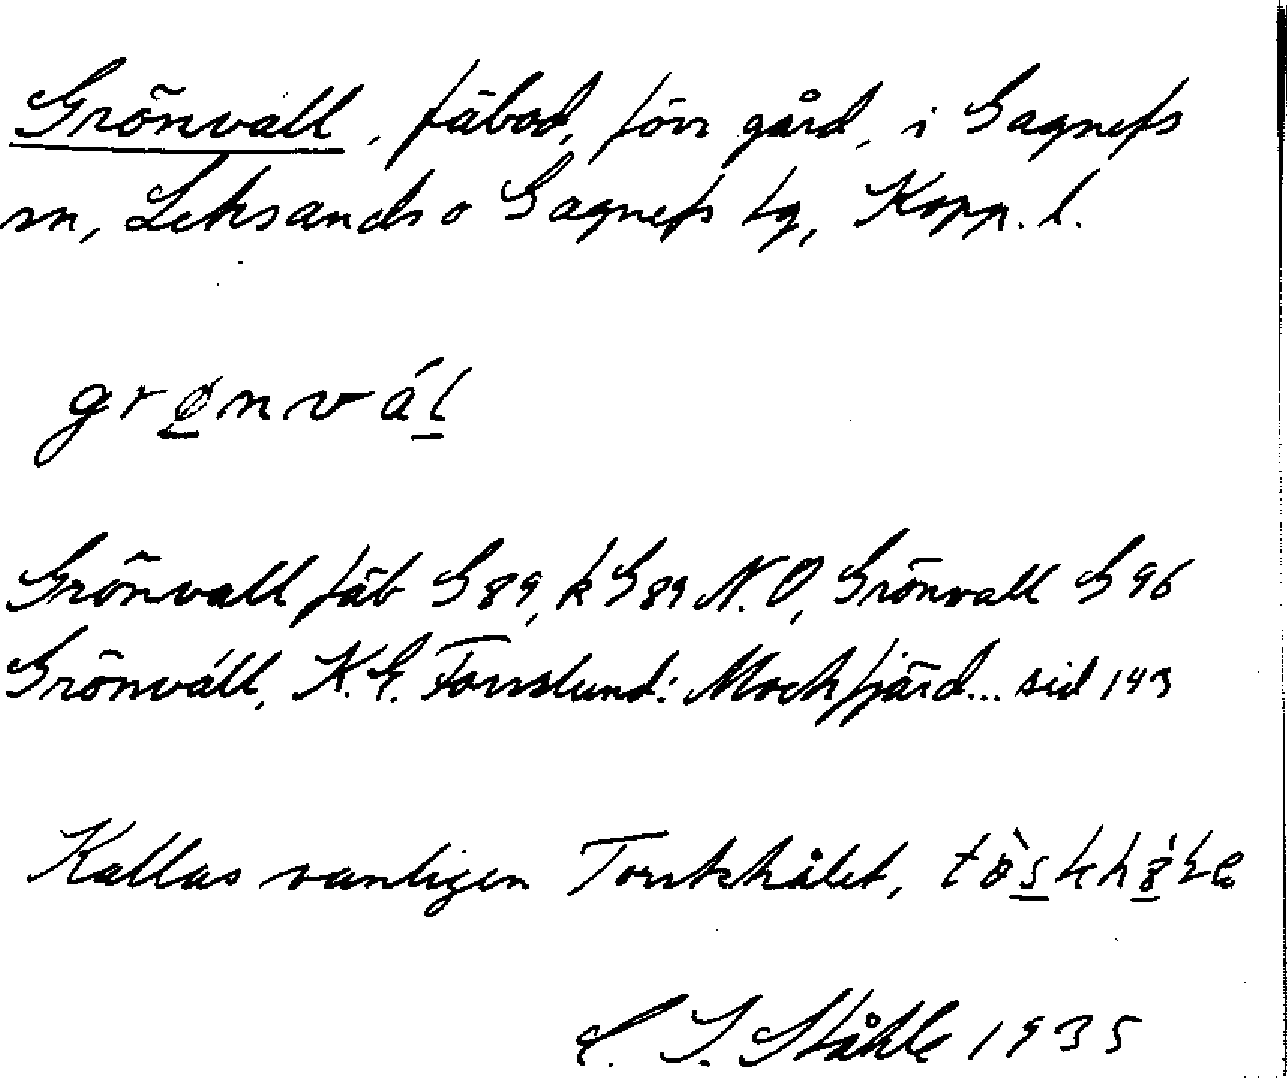 Grönvall, fäbod, förr gård, i Gagnefs
sn, Leksands o Gagnefs tg, Kopp. l.
grønvál
Grönvall fäb G 89, k G 89 N.O, Grönvall G 96
Grönváll, K.E. Forsslund: Mockfjärd... sid 143
Kallas vanligen Torskhålet,
C. I. Ståhle 1935